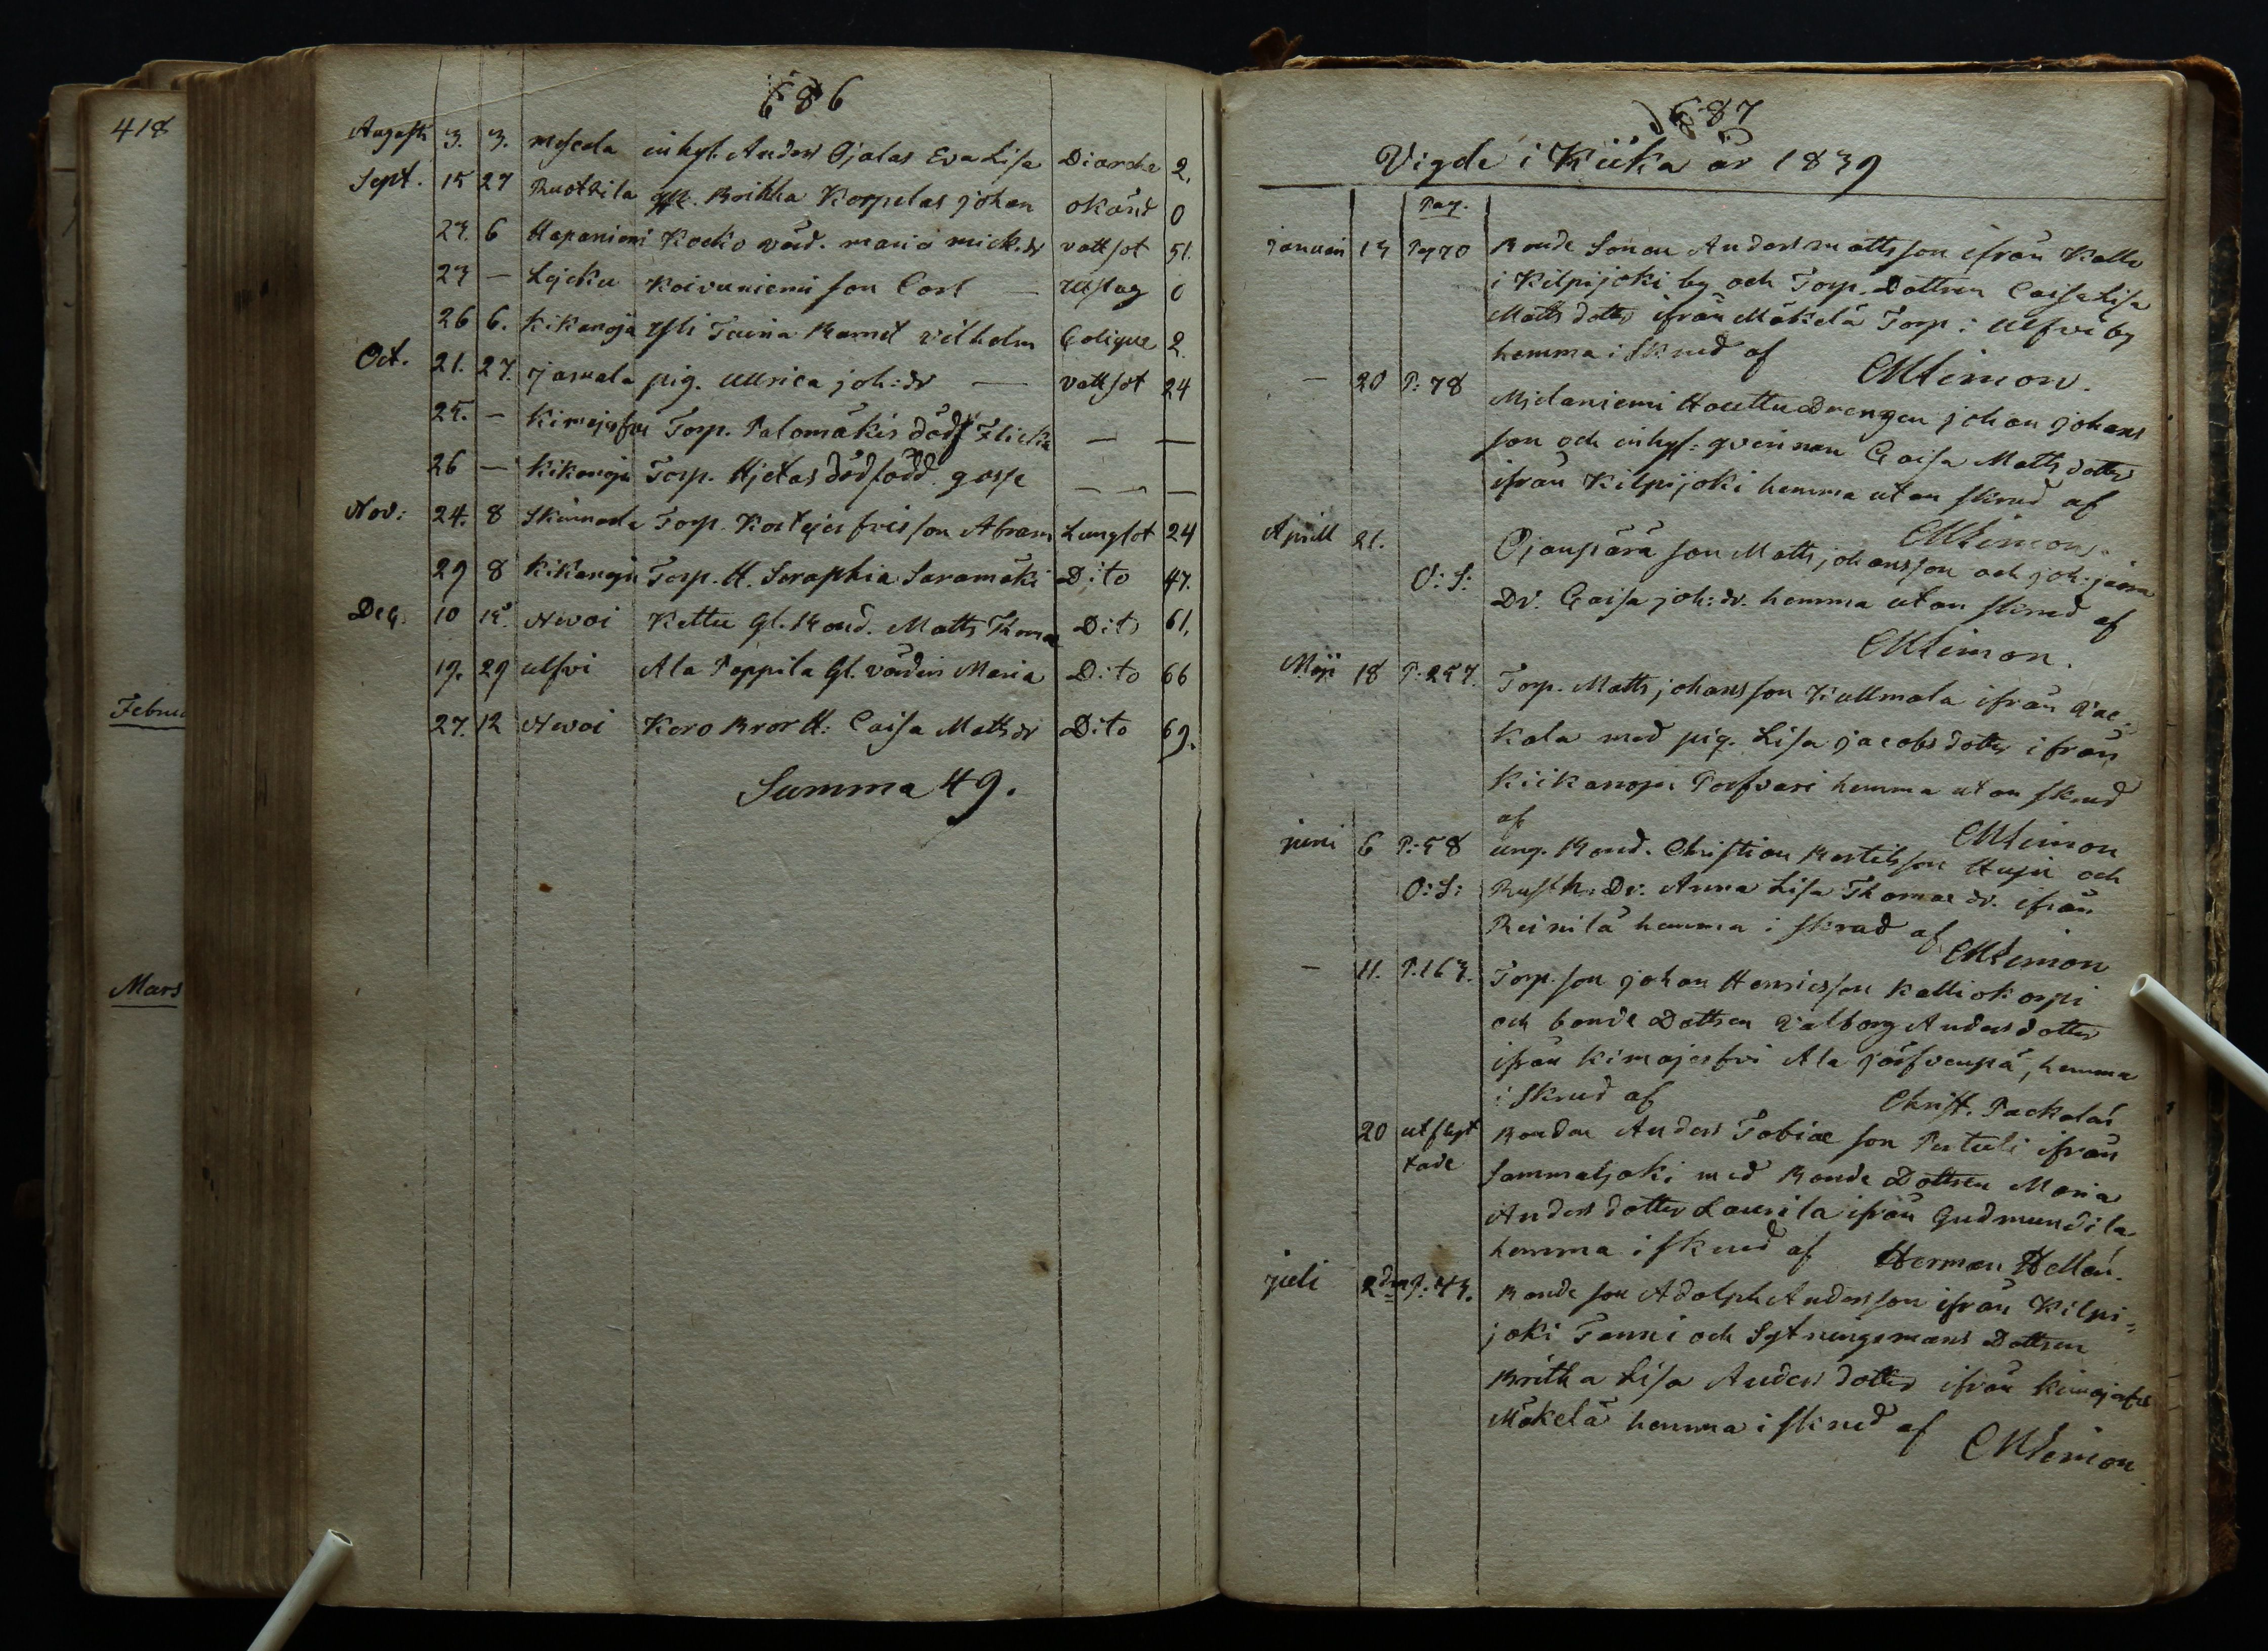 418
Februa
Mars
686
Augusti 3. 3. Meskala inhys. Anders Ojalas Eva Lisa Diarche 2.
Sept. 15 27 Ruotsila Brihka Korpelas Johan okänd 0
23. 6 Hapaniemi Kocko värd. Maria Mick.dr vattsot 51.
23 — Lejcku Koivuniemi son Carl — utslag 0
26 6. Kikanoja Taina Barnet Vilhelm Colique 2.
Oct. 21. 27. Jamala pig. Ullrica Joh:dr — vattsot 24
25. — Kimajerfvi Torp. Palomäkis dödf. Flicka — —
26 — Kikanoja Torp. Hjetas dödfödd gosse — —
Nov: 24. 8 Skinnarla Torp. Kortejerfvis son Abram Lungsot 24
29 8 Kikanoja Torp. H. Seraphia Saramäki Dito 47.
Dec. 10 Newoi Kettu Gl. Bond. Matts Thomae Dito 61.
19. 29 Ulfvi Ala Peppila Gl. värdin Maria Dito 66
27. 12 Newoi Kero Bror H: Caisa Matts dr Dito 69.
Summa 49.
687
Vigde i Kiika år 1839
Pag.
Januari 13 Pag 70 Bonde Sonen Anders Mattsson ifrån Kallo
i Kilpijoki by och Torp. Dottren Caisa Lisa
Matts dotter ifrån Mäkelä Torp i Ulfvi by
hemma i skrud af CMLimon.
— 20 P: 78 Mjelaniemi Houttu Drengen Johan Johans
son och inhys: qvinnan Caisa Matts dotter
ifrån Kilpijoki hemma utan skrud af
CMLimon.
Aprill 21. Ojanperä son Matts Johansson och joh: jäara
O: S: Dr. Caisa joh: dr. hemma utan skrud af
CMLimon.
Maji 18 P. 257. Torp. Matts Johansson Kullmala ifrån Pae-
kala med pig. Lisa Jacobsdotter ifrån
Kiikanoja Torfvari hemma utan skrud
af CMLimon
Juni 6 P: 58 ung. Bond. Christian Bertilsson Hupii och
O: S: Rusth: Dr. Anna Lisa Thomae dr. ifrån
Reinilä hemma i skrud af CMLimon
— 11. P. 163. Torp. son Johan Henricsson Kalliokorpi
och bonde Dottren Valborg Anders dotter
ifrån Kimajerfvi Ala Järfvenpä, hemma
i skrud af Christ. Packalén
20 utflyt Bonden Anders Tobiae son Pertuli ifrån
tade Sammaljoki med Bonde Dottren Maria
Anders dotter Laurila ifrån Gudmundila
hemma i skrud af Herman Hellén.
Juli 2dra P: 43. Bonde son Adolph Andersson ifrån Kilpi-
joki Fenni och Sytningsmans Dottren
Britha Lisa Anders dotter ifrån Kimajerfvi
Mäkelä hemma i skrud af CMLimon